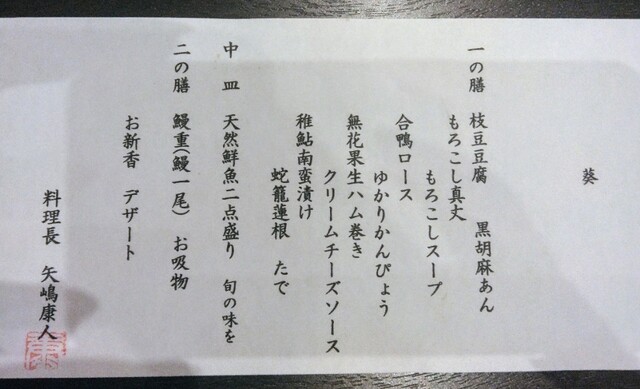 葵
一の膳　枝豆豆腐　黒胡麻あん
もろこし真丈
もろこしスープ
合鴨ロース
ゆかりかんぴょう
無花果生ハム巻き
クリームチーズソース
稚鮎南蛮漬け
蛇籠蓮根　たで
中　皿　天然鮮魚二点盛り　旬の味を
二の膳　鰻重(鰻一尾)　お吸物
お新香　デザート
料理長　矢嶋康人